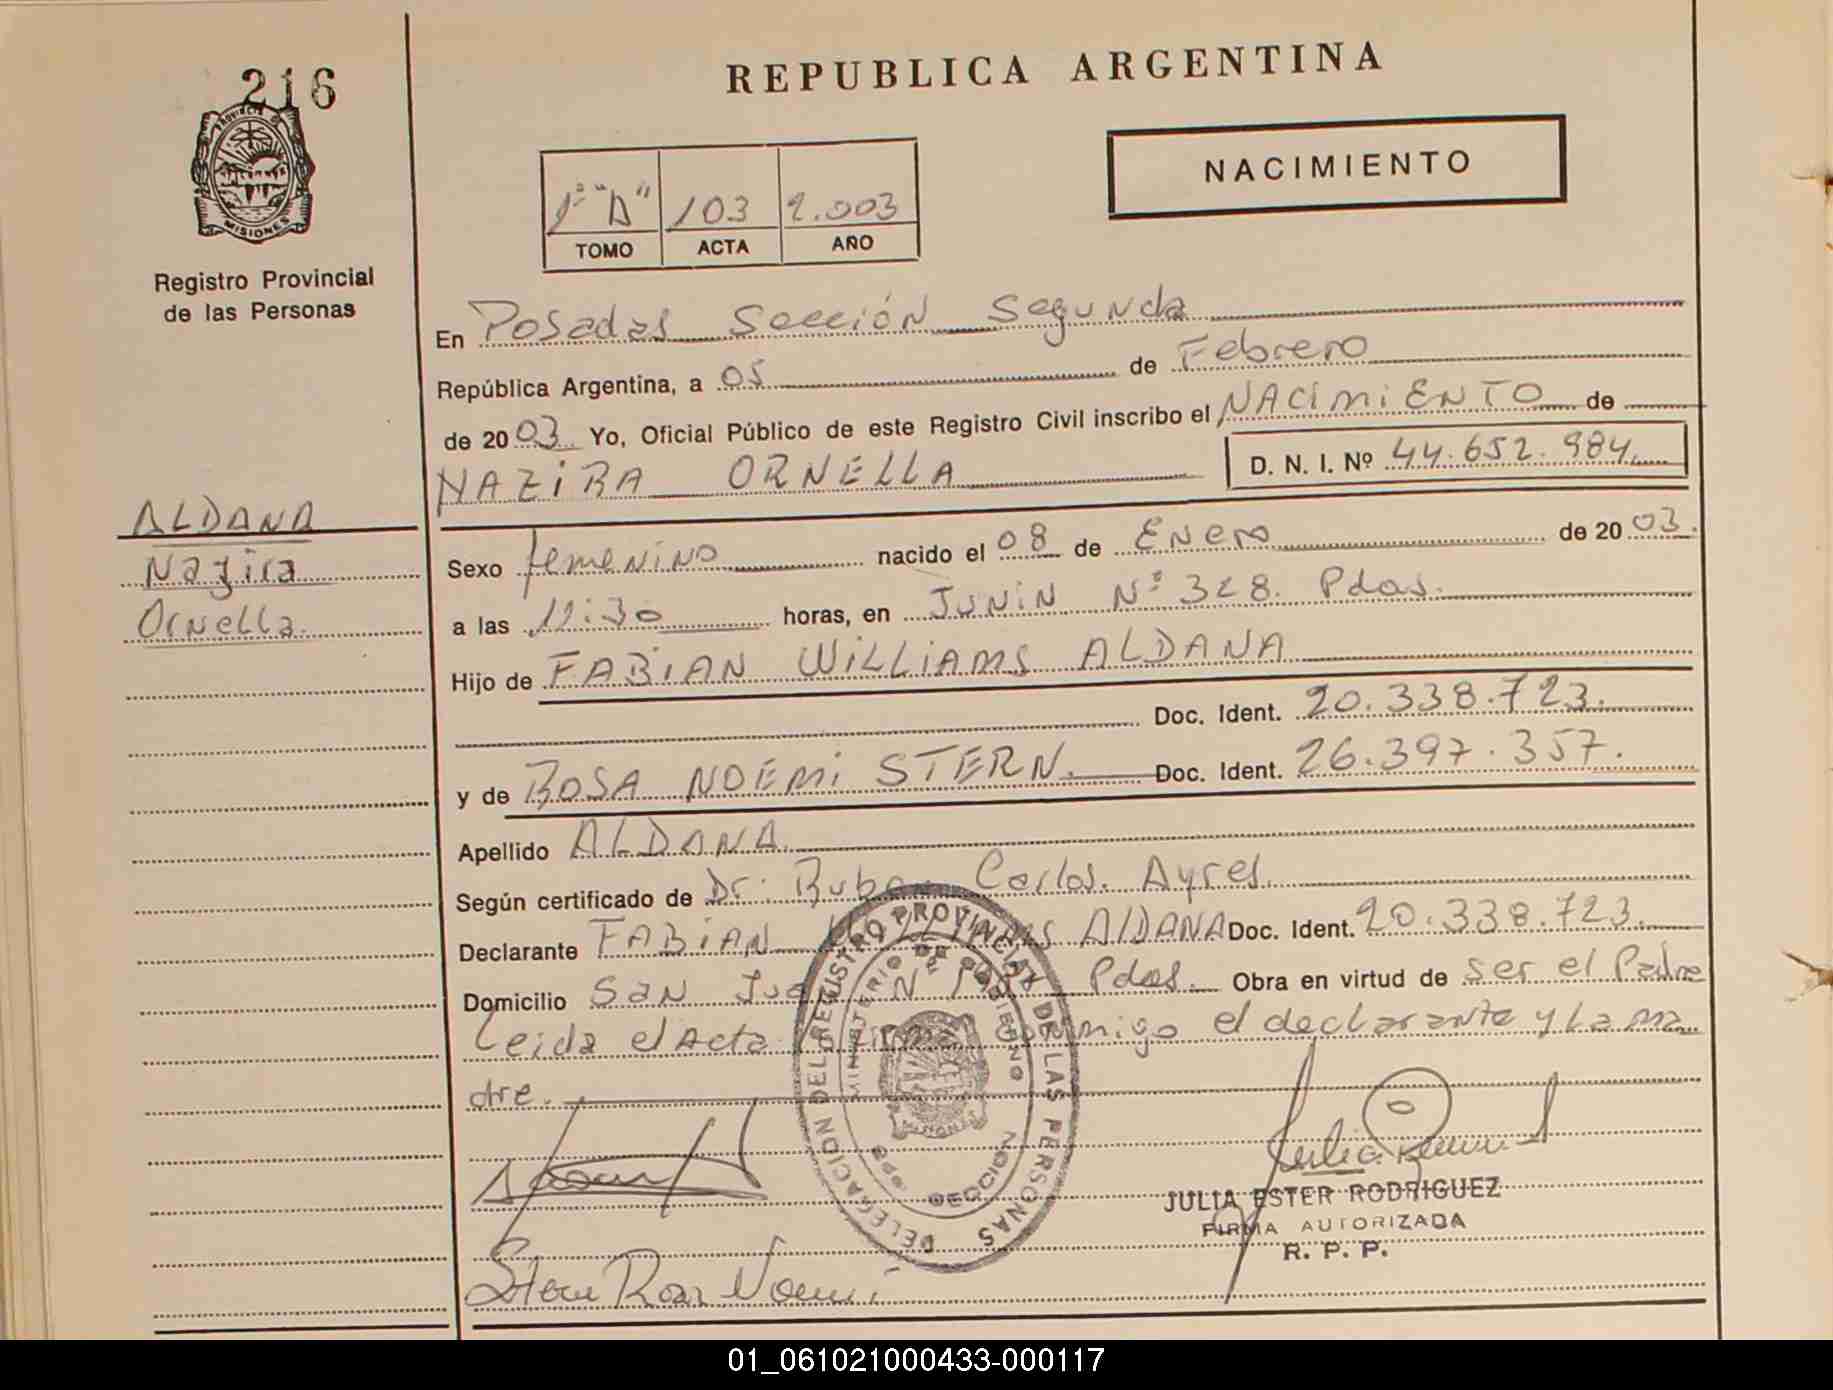 216
REPUBLICA ARGENTINA
PROVINCIA DE
MISIONES
Registro Provincial
de las Personas
1º "D" 103 2.003
TOMO ACTA AÑO
NACIMIENTO
En Posadas Sección Segunda
República Argentina, a 05 de Febrero
de 2003 Yo, Oficial Público de este Registro Civil inscribo el NACIMIENTO de
NAZIRA ORNELLA D. N. I. Nº 44.652.984
ALDANA
Nazira
Ornella.
Sexo femenino nacido el 08 de Enero de 2003.
a las 11:30 horas, en JUNIN Nº 328. Pdas.
Hijo de FABIAN WILLIAMS ALDANA
Doc. Ident. 20.338.723.
y de ROSA NOEMI STERN. Doc. Ident. 26.397.357.
Apellido ALDANA.
Según certificado de Dr. Ruben Carlos Ayres.
Declarante FABIAN WILLIAMS ALDANA Doc. Ident. 20.338.723.
Domicilio San Juan Nº Pdas. Obra en virtud de ser el Padre
Leida el Acta la firma conmigo el declarante y la ma
dre.
DELEGACION DEL REGISTRO PROVINCIAL DE LAS PERSONAS
MINISTERIO DE GOBIERNO
2da SECCION
MISIONES
Stern Rosa Noemi
JULIA ESTER RODRIGUEZ
FIRMA AUTORIZADA
R. P. P.
01_061021000433-000117